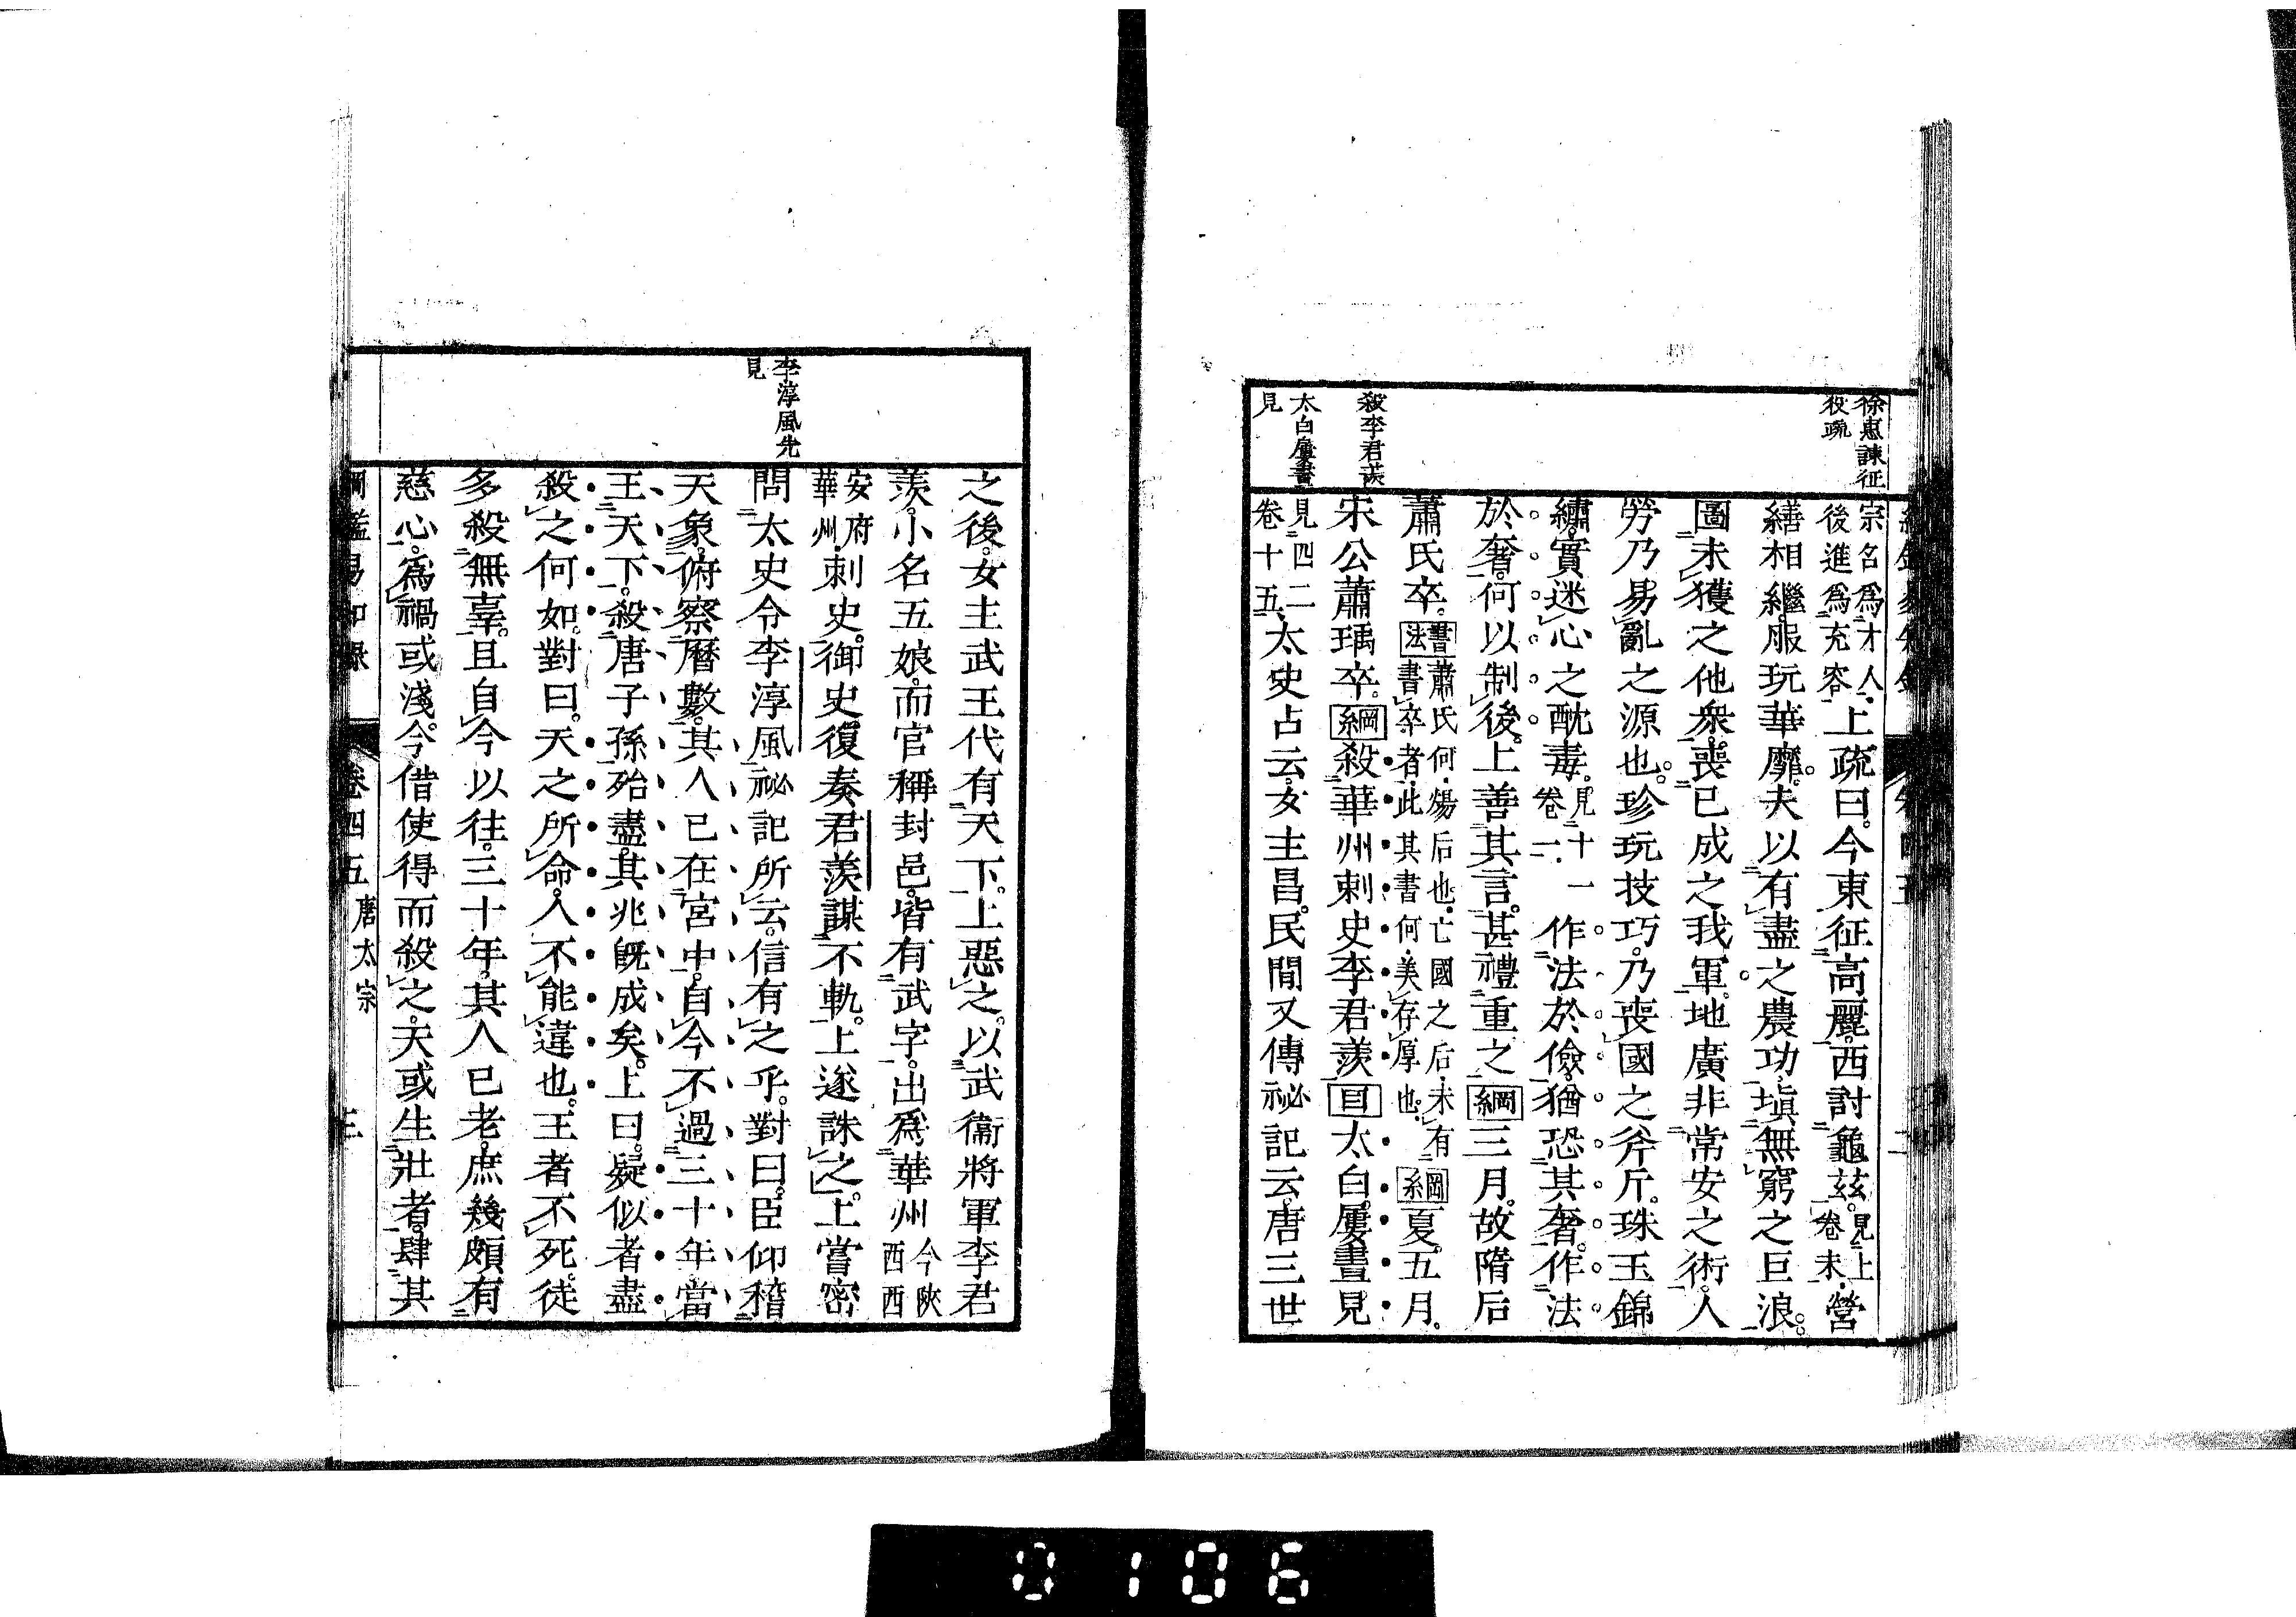 徐惠諫征
役疏
殺李君羨
太白屢晝
見
宗名爲才人
後進爲充容
上疏曰。今東征高麗。西討龜茲。
見上
卷末
營
繕相繼。服玩華靡。夫以有盡之農功。塡無窮之巨浪。
圖未獲之他衆。喪已成之我軍。地廣非常安之術。人
勞乃易亂之源也。珍玩技巧。乃喪國之斧斤。珠玉錦
繡。實迷心之酖毒。
見十一
卷二
作法於儉。猶恐其奢。作法
於奢。何以制後。上善其言。甚禮重之綱三月。故隋后
蕭氏卒。
書蕭氏何煬后也亡國之后未有
法書卒者此其書何美存厚也
綱夏。五月。
宋公蕭瑀卒。綱殺華州刺史李君羨目太白。屢晝見
見四二
卷十五
太史占云。女主昌。民間又傳祕記云。唐三世
李淳風先
見
之後。女主武王代有天下。上惡之。以武衞將軍李君
羨。小名五娘。而官稱封邑。皆有武字。出爲華州
今陝西西
安府華州
刺史。御史復奏君羨謀不軌。上遂誅之。上嘗密
問太史令李淳風。祕記所云。信有之乎。對曰。臣仰稽
天象。俯察曆數。其人已在宮中。自今不過三十年。當
王天下。殺唐子孫殆盡。其兆旣成矣。上曰。疑似者盡
殺之何如。對曰。天之所命。人不能違也。王者不死。徒
多殺無辜。且自今以往。三十年。其人已老。庶幾頗有
慈心。爲禍或淺。今借使得而殺之。天或生壯者。肆其
綱鑑易知錄 卷四五 唐太宗 三
0106